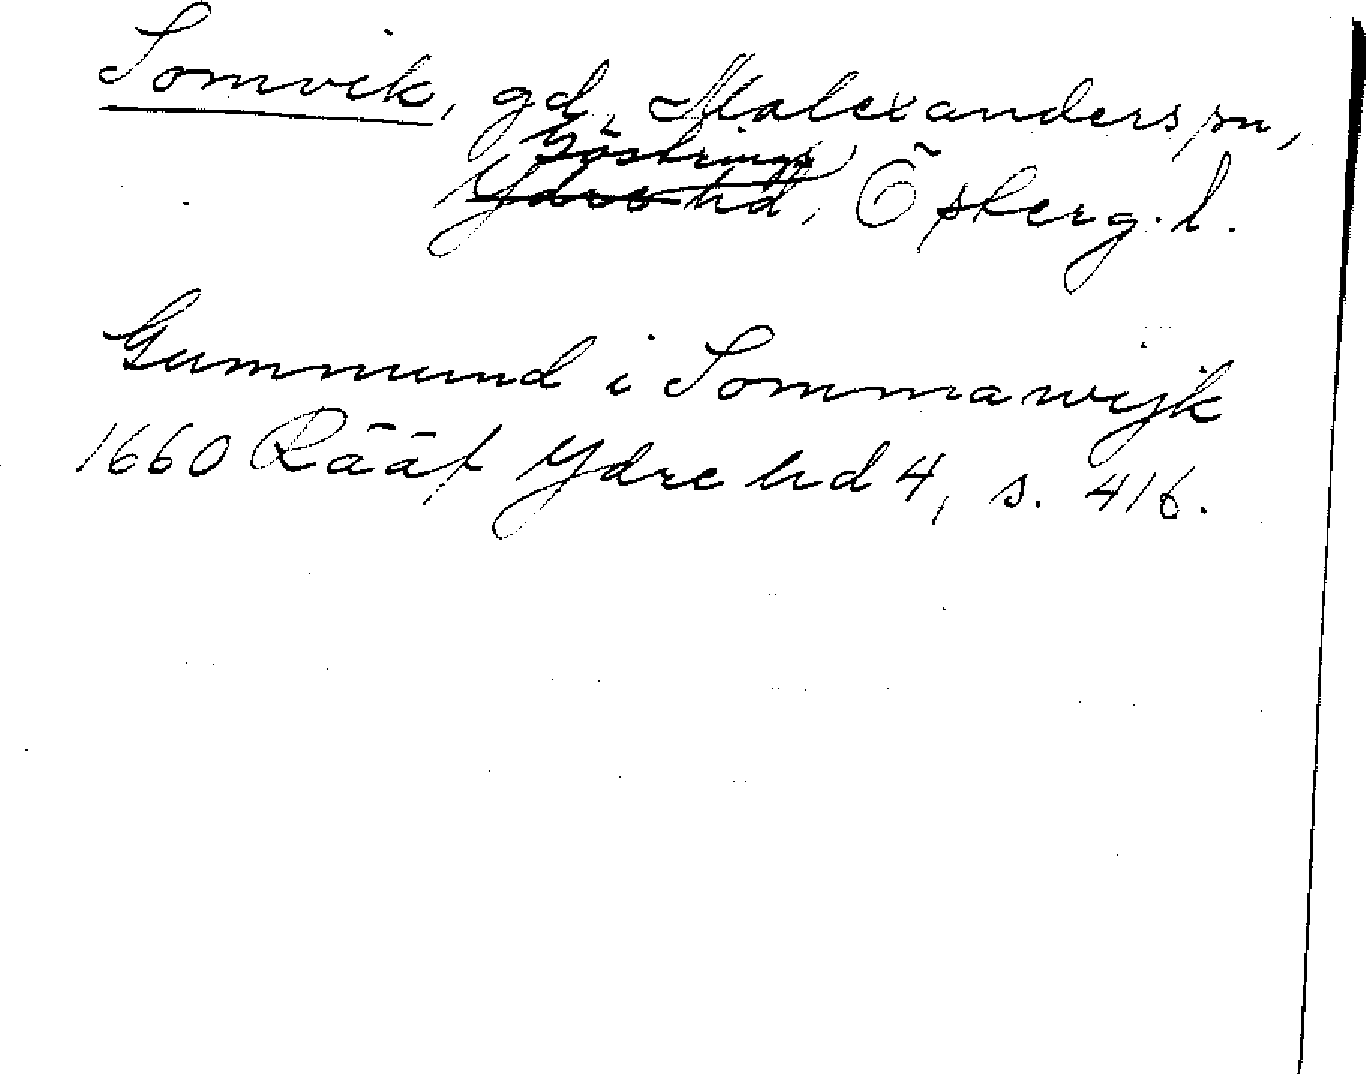 Somvik, gd, Malexanders sn,
Göstrings
Ydre hd, Östergl.
Gummund i Sommawijk
1660 Rääf Ydre hd 4, s. 416.